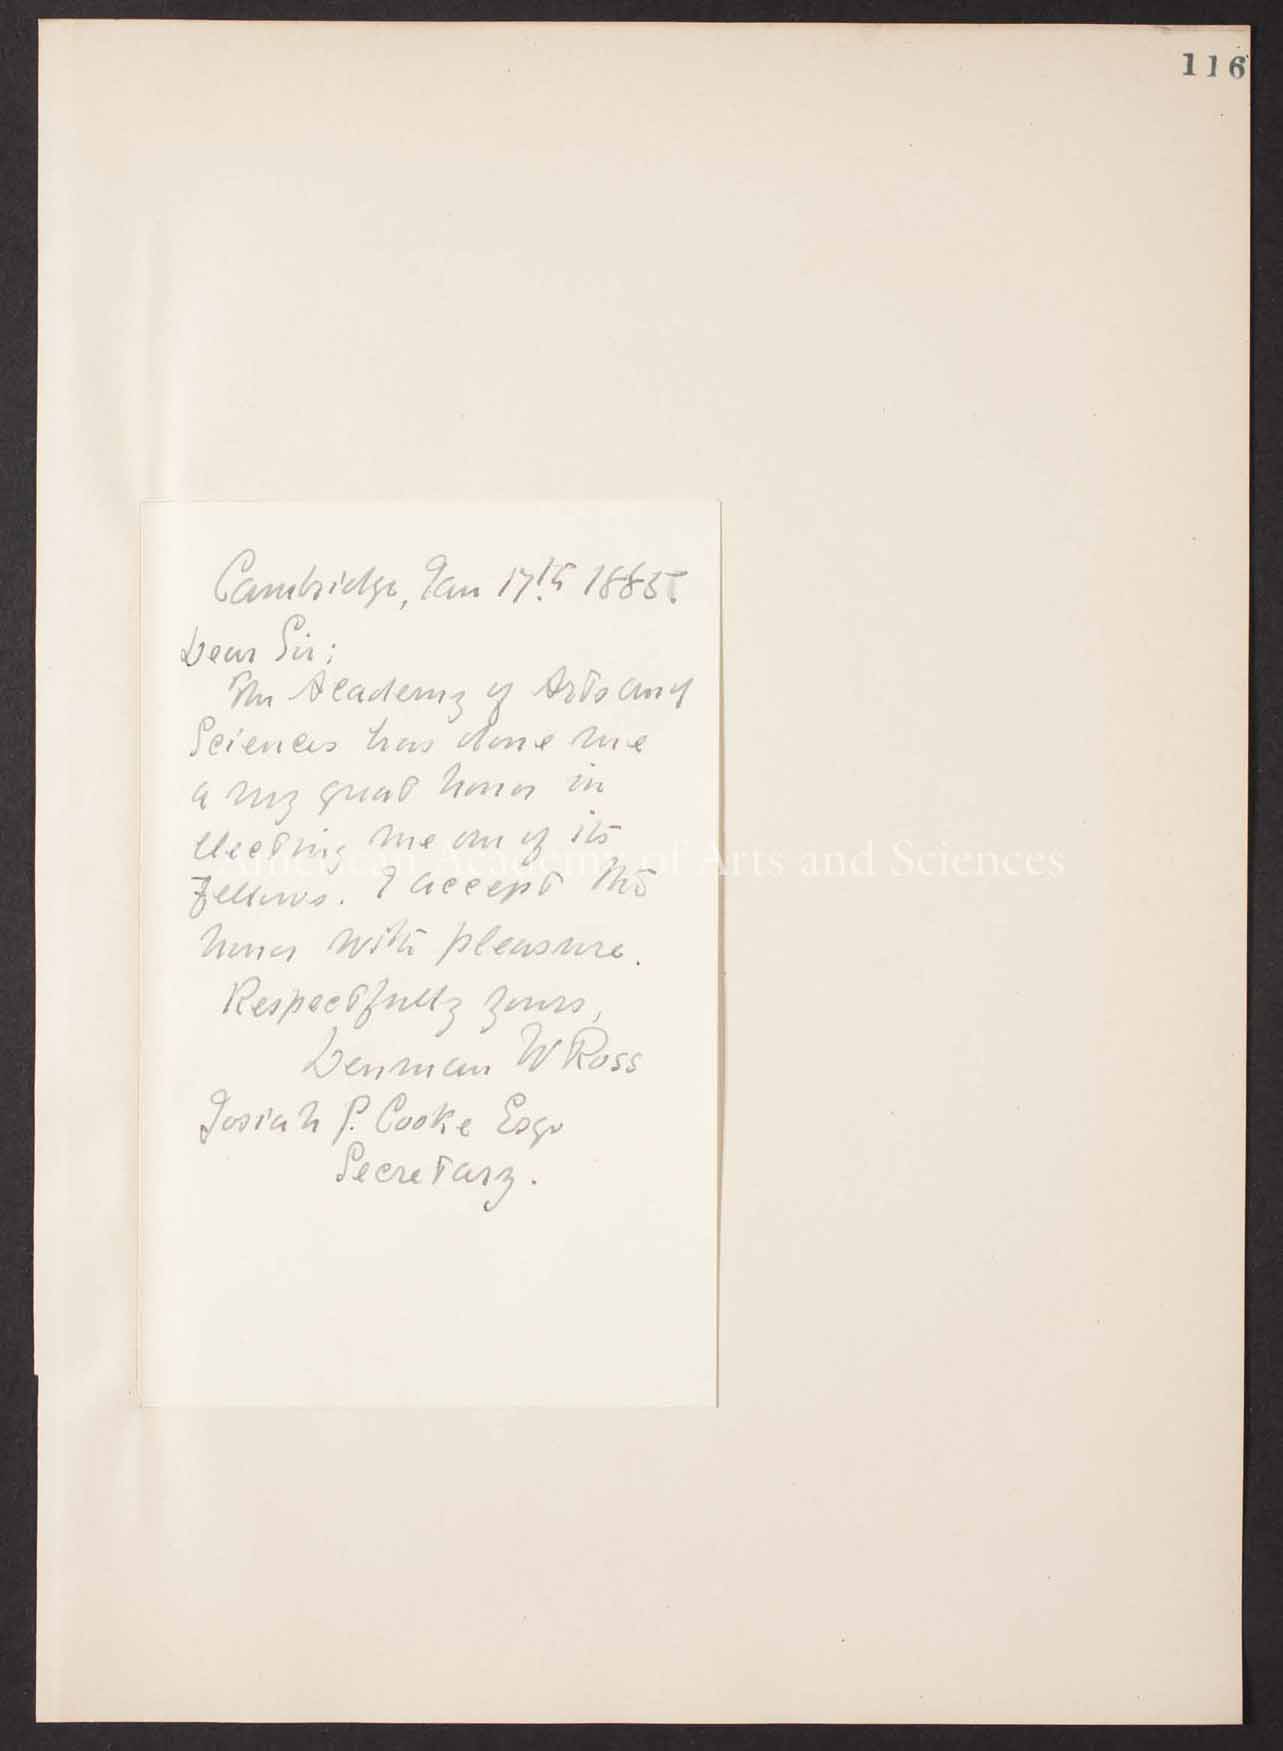 116
Cambridge, Jan 17th 1885.
Dear Sir;
The Academy of Arts and
Sciences has done me
a very great honor in
electing me one of its
fellows. I accept this
honor with pleasure.
Respectfully yours,
Denman W Ross
Josiah P. Cooke Esqr
Secretary.
American Academy of Arts and Sciences